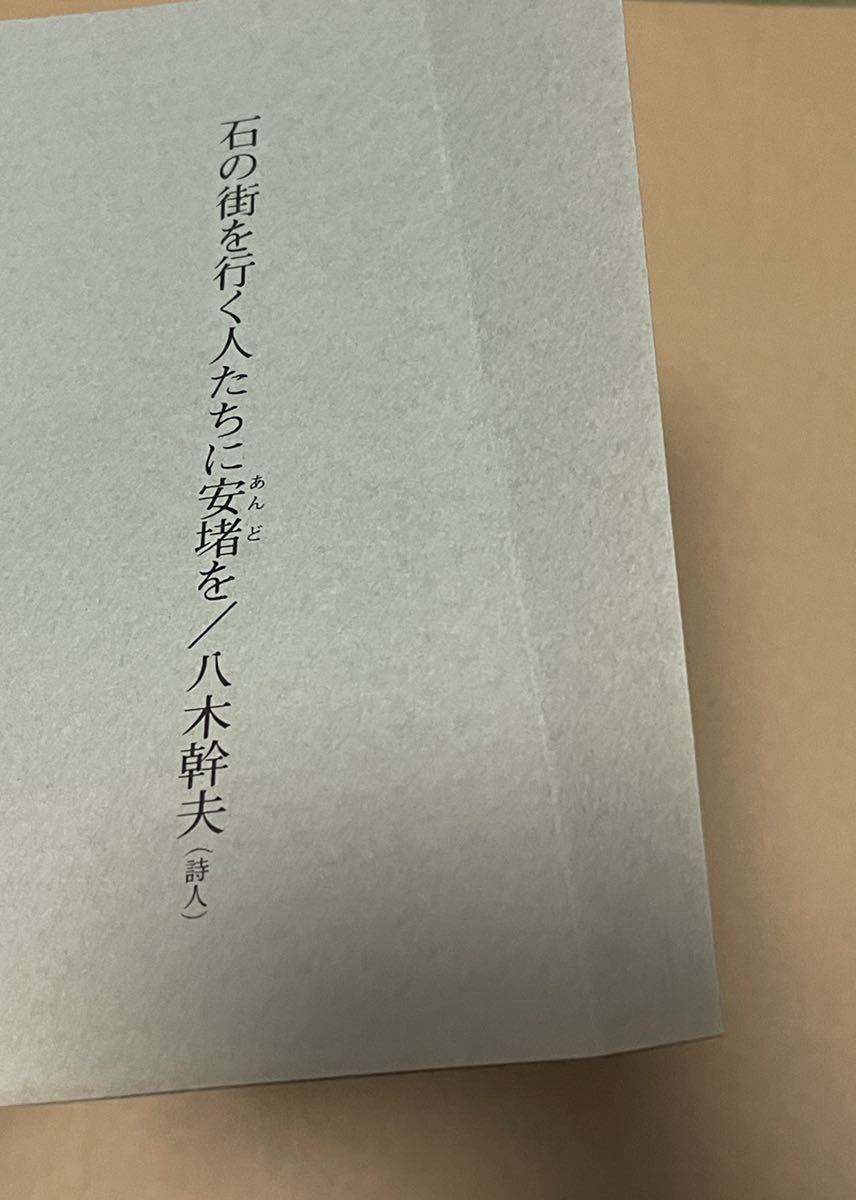 石の街を行く人たちに安堵を／八木幹夫（詩人）
あんど